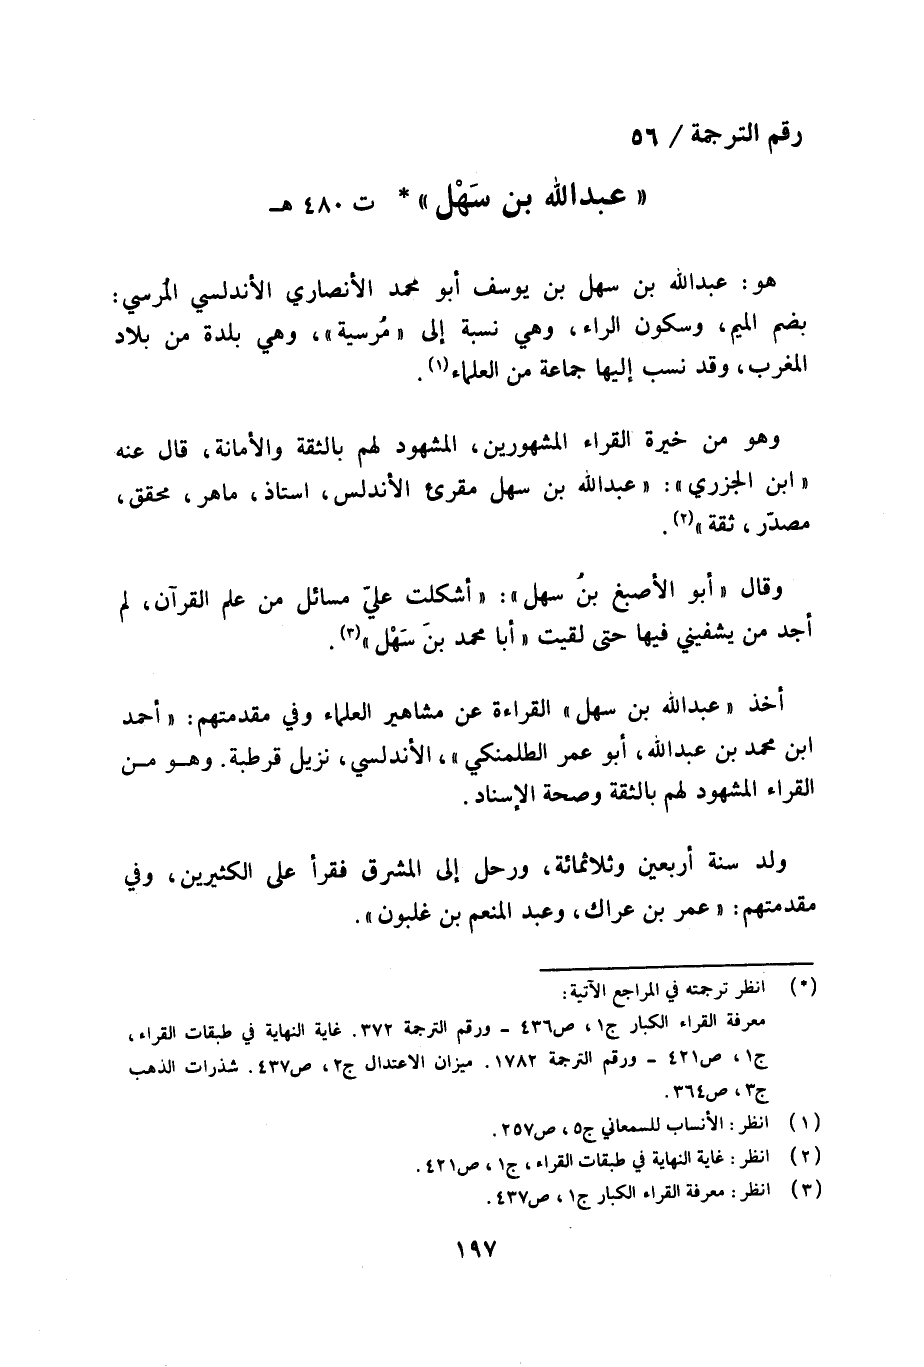 رقم الترجمة / ٥٦
« عبدالله بن سَهْل » * ت ٤٨٠ هـ
هو : عبدالله بن سهل بن يوسف أبو محمد الأنصاري الأندلسي المُرسي :
بضم الميم، وسكون الراء، وهي نسبة إلى « مُرسية»، وهي بلدة من بلاد
المغرب، وقد نسب إليها جماعة من العلماء(١) .
وهو من خيرة القراء المشهورين، المشهود لهم بالثقة والأمانة، قال عنه
« ابن الجزري»: « عبدالله بن سهل مقرئ الأندلس، استاذ، ماهر، محقق،
مصدّر، ثقة »(٢) .
وقال « أبو الأصبغ بنُ سهل»: « أشكلت عليّ مسائل من علم القرآن، لم
أجد من يشفيني فيها حتى لقيت « أبا محمد بنَ سَهْل »(٣) .
أخذ « عبدالله بن سهل» القراءة عن مشاهير العلماء وفي مقدمتهم: « أحمد
ابن محمد بن عبدالله، أبو عمر الطلمنكي»، الأندلسي، نزيل قرطبة. وهـو مـن
القراء المشهود لهم بالثقة وصحة الإسناد .
ولد سنة أربعين وثلاثمائة، ورحل إلى المشرق فقرأ على الكثيرين، وفي
مقدمتهم: « عمر بن عراك، وعبد المنعم بن غلبون» .
(*) انظر ترجمته في المراجع الآتية :
معرفة القراء الكبار ج١، ص٤٣٦ - ورقم الترجمة ٣٧٢. غاية النهاية في طبقات القراء،
ج١، ص٤٢١ - ورقم الترجمة ١٧٨٢. ميزان الاعتدال ج٢، ص٤٣٧. شذرات الذهب
ج٣، ص٣٦٤.
(١) انظر : الأنساب للسمعاني ج٥، ص٢٥٧.
(٢) انظر : غاية النهاية في طبقات القراء، ج١، ص٤٢١.
(٣) انظر : معرفة القراء الكبار ج١، ص٤٣٧.
١٩٧